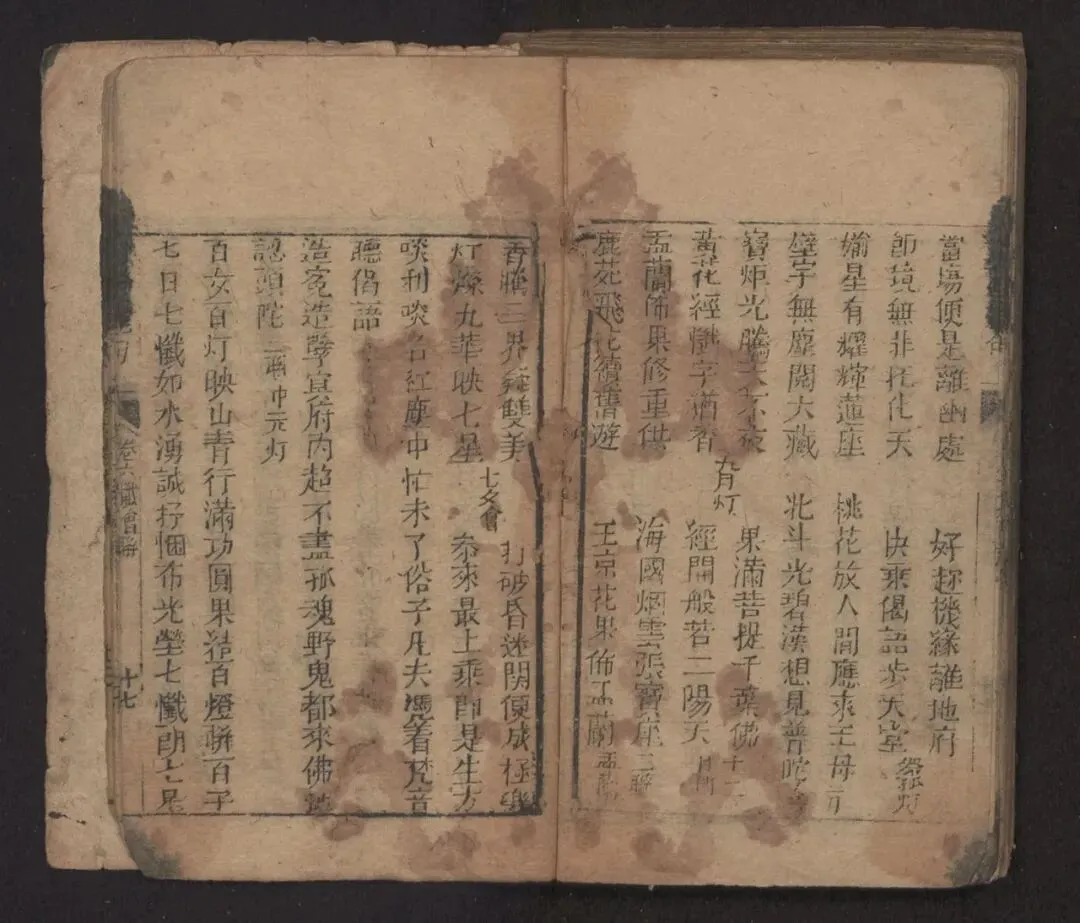 當場便是離幽處 好趂機緣離地府
即境無非托化天 快乘偈語步天堂 祭灯
星有耀輝蓮座 桃花放人間應來王母
壁宇無塵開大藏 北斗光碧漢想見普陀
寶炬光騰大不夜 果滿菩提千葉佛
黃花經懺字猶香 九月灯 經開般若二陽天
盂蘭佈果修重供 海國烟雲張寶座
鹿苑飛花續舊遊 王京花果佈盂蘭
香騰三界 雙美 打破昏迷関便成極樂
灯燎九華映七星 七夕會 叅來最上乘即是生方
啖利啖名紅塵中忙未了俗子凡夫憑着梵音
聽偈語
造寃造孽宜府内超不盡孤魂野鬼都來佛
認頭陀 元灯
百女百灯映山青行滿功圓果結百燈聨百子
七日七懺如水湧誠抒悃布光瑩七懺朗七星
卷六 懺會聨
十七